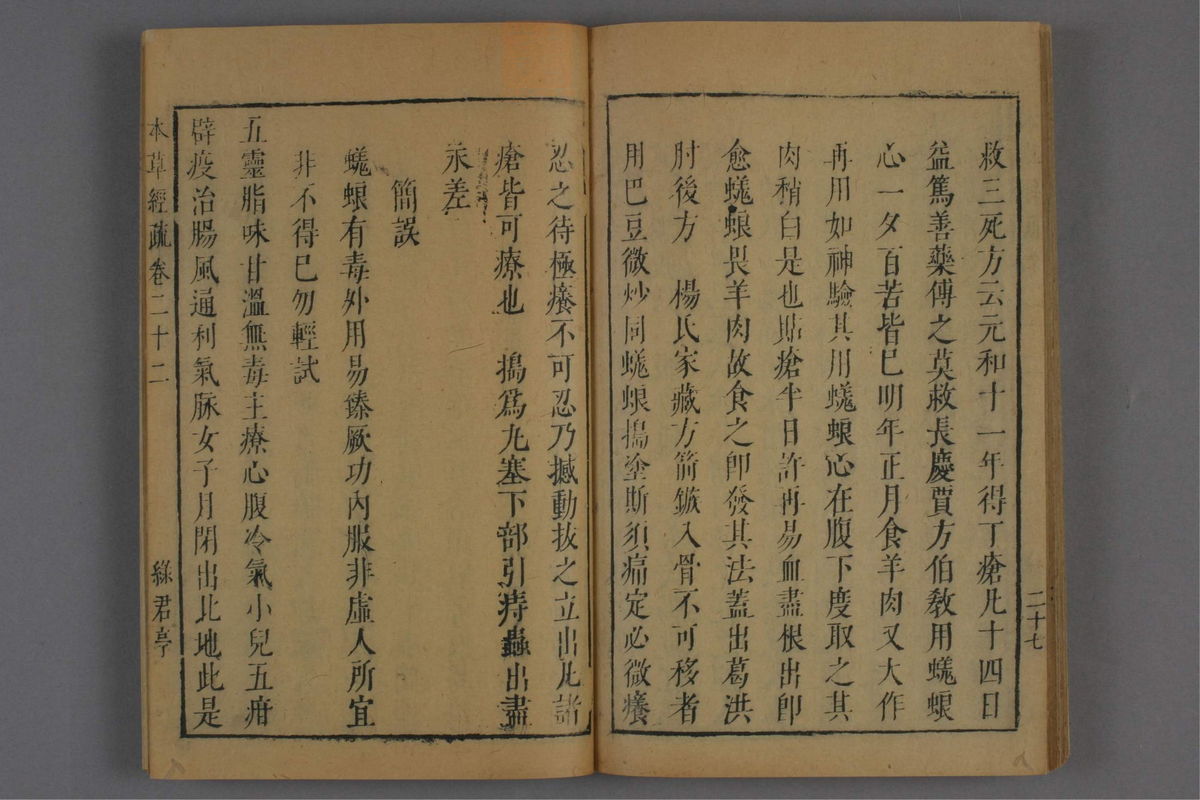 二十七
救三死方云元和十一年得丁瘡凡十四日
益篤善藥傳之莫救長慶賈方伯教用蜣蜋
心一夕百苦皆已明年正月食羊肉又大作
再用如神驗其用蜣蜋心在腹下度取之其
肉稍白是也貼瘡半日許再易血盡根出卽
愈蜣蜋畏羊肉故食之卽發其法蓋出葛洪
肘後方　楊氏家藏方箭鏃入骨不可移者
用巴豆微炒同蜣蜋搗塗斯須痛定必微癢
忍之待極癢不可忍乃撼動拔之立出凡諸
瘡皆可療也　搗爲丸塞下部引痔蟲出盡
永差
簡誤
蜣蜋有毒外用易臻厥功內服非虛人所宜
非不得已勿輕試
五靈脂味甘溫無毒主療心腹冷氣小兒五疳
辟疫治腸風通利氣脉女子月閉出北地此是
本草經疏卷二十二
綠君亭